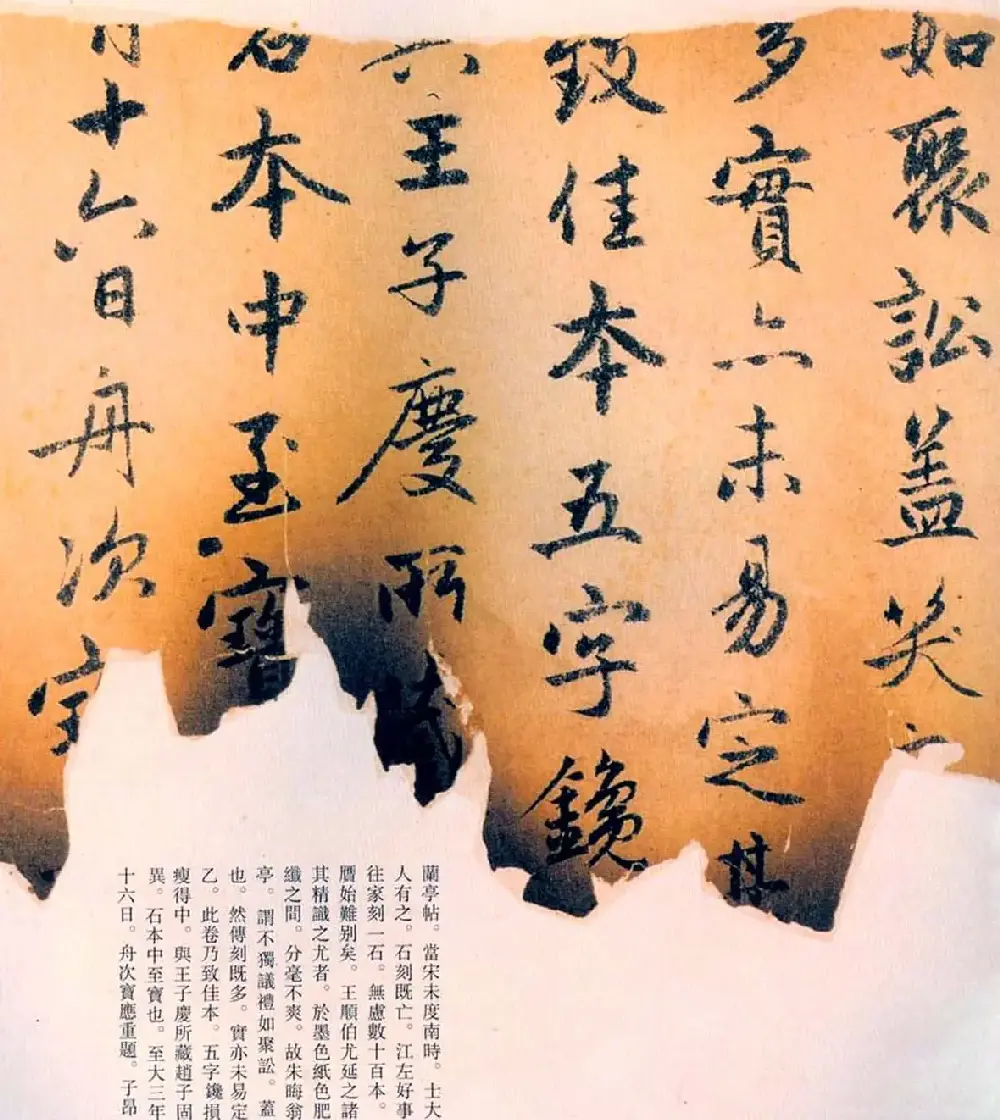 如聚訟蓋笑
多實亦未易定其
致佳本五字鑱
王子慶所藏
石本中至寶
月十六日舟次寶
蘭亭帖。當宋未度南時。士大
人有之。石刻既亡。江左好事
往家刻一石。無慮數十百本。
贋始難別矣。王順伯尤延之諸
其精識之尤者。於墨色紙色肥
纖之間。分毫不爽。故朱晦翁
亭。謂不獨議禮如聚訟。蓋
也。然傳刻既多。實亦未易定
乙。此卷乃致佳本。五字鑱損
瘦得中。與王子慶所藏趙子固
異。石本中至寶也。至大三年
十六日。舟次寶應重題。子昂